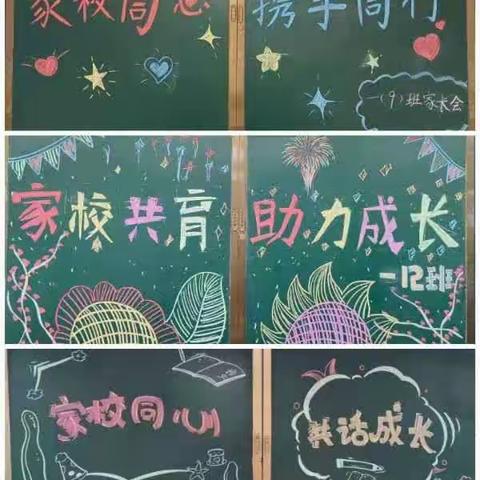 家校同心 携手同行
一(9)班家长会
家校共育 助力成长
一12班
家校同心 共话成长